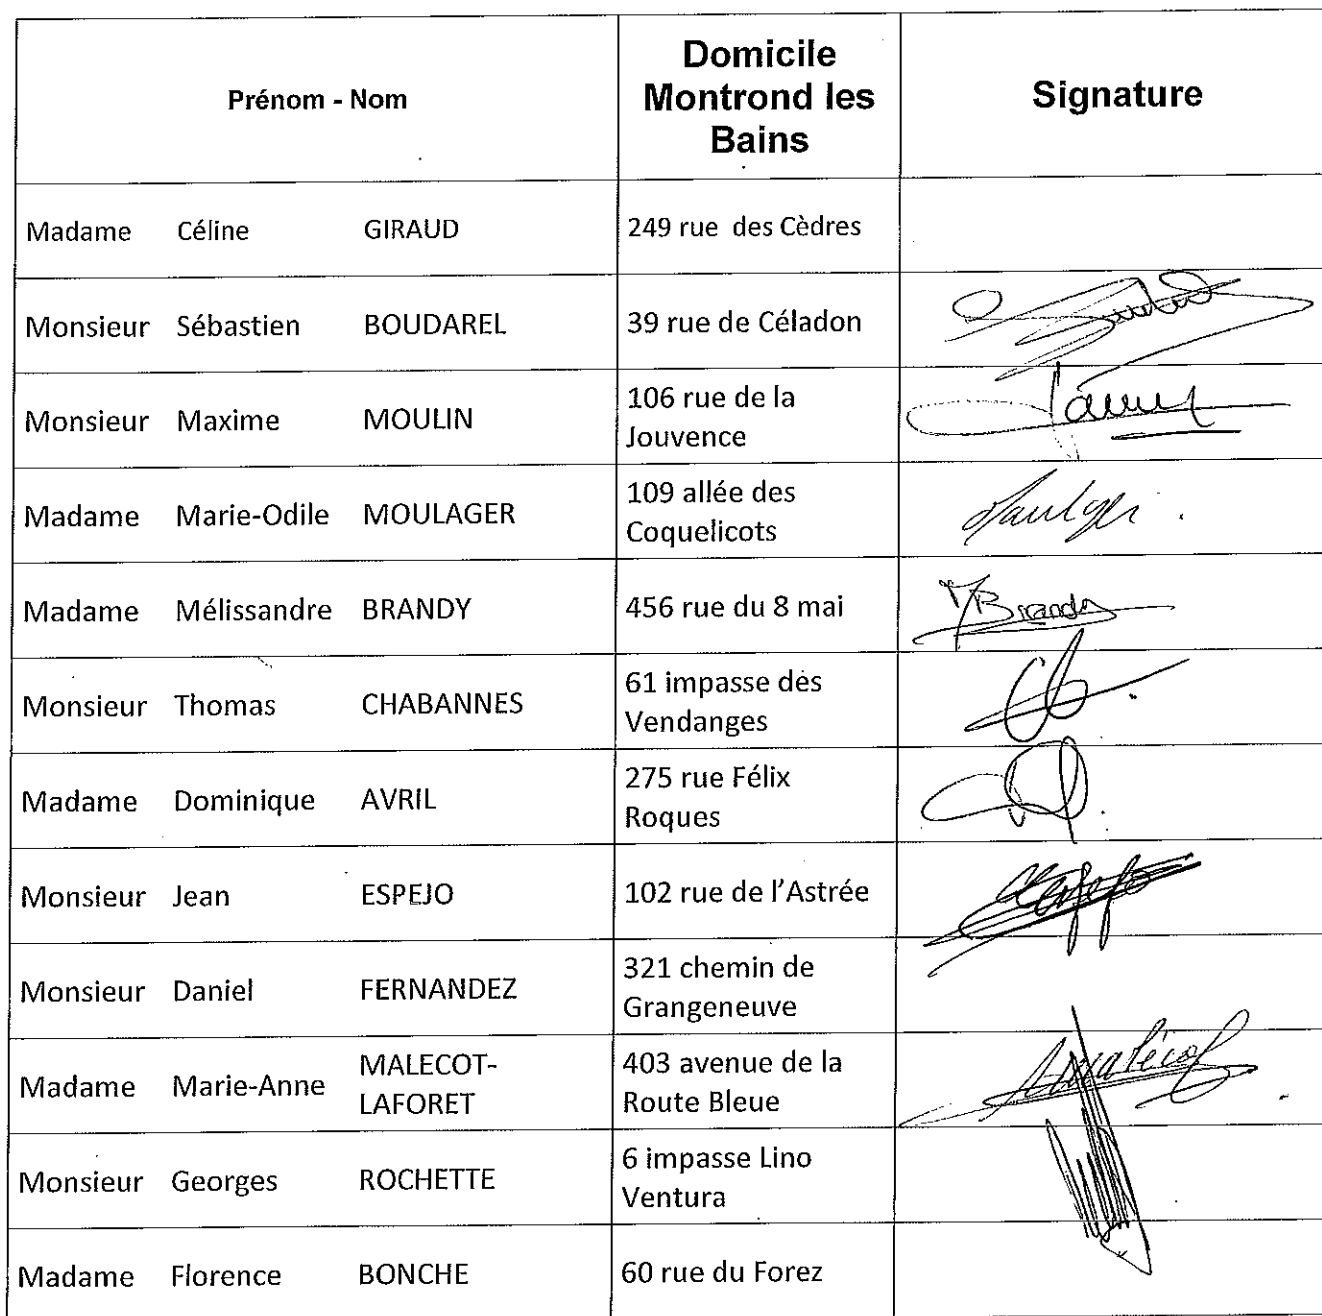 Prénom - Nom
Domicile
Montrond les
Bains
Signature
Madame Céline GIRAUD 249 rue des Cèdres
Monsieur Sébastien BOUDAREL 39 rue de Céladon
Monsieur Maxime MOULIN 106 rue de la
Jouvence
Madame Marie-Odile MOULAGER 109 allée des
Coquelicots
Madame Mélissandre BRANDY 456 rue du 8 mai
MBrandy
Monsieur Thomas CHABANNES 61 impasse des
Vendanges
Madame Dominique AVRIL 275 rue Félix
Roques
Monsieur Jean ESPEJO 102 rue de l'Astrée
Monsieur Daniel FERNANDEZ 321 chemin de
Grangeneuve
Madame Marie-Anne MALECOT-
LAFORET
403 avenue de la
Route Bleue
Monsieur Georges ROCHETTE 6 impasse Lino
Ventura
Madame Florence BONCHE 60 rue du Forez